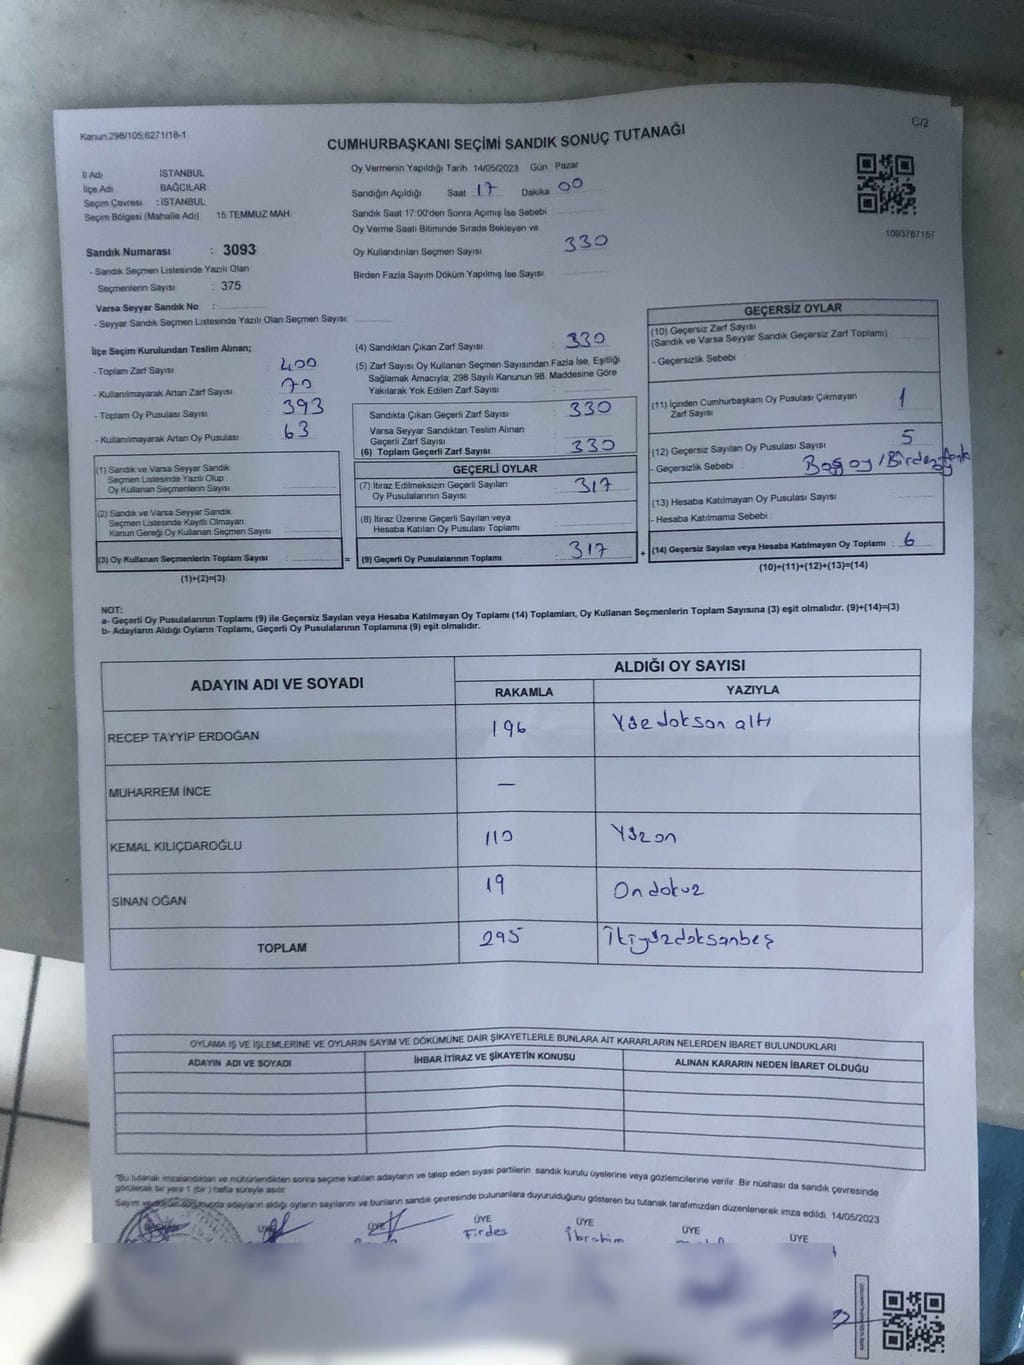 Kanun,298/105;6271/18-1
C/2
CUMHURBAŞKANI SEÇİMİ SANDIK SONUÇ TUTANAĞI
İl Adı İSTANBUL
İlçe Adı BAĞCILAR
Seçim Çevresi : İSTANBUL
Seçim Bölgesi (Mahalle Adı) 15 TEMMUZ MAH.
Sandık Numarası : 3093
- Sandık Seçmen Listesinde Yazılı Olan
Seçmenlerin Sayısı : 375
Varsa Seyyar Sandık No :
- Seyyar Sandık Seçmen Listesinde Yazılı Olan Seçmen Sayısı:
Oy Vermenin Yapıldığı Tarih 14/05/2023 Gün : Pazar
Sandığın Açıldığı Saat 17 Dakika 00
Sandık Saat 17:00'den Sonra Açımış İse Sebebi
Oy Verme Saati Bitiminde Sırada Bekleyen ve
Oy Kullandırılan Seçmen Sayısı 330
Birden Fazla Sayım Döküm Yapılmış İse Sayısı
1093787157
İlçe Seçim Kurulundan Teslim Alınan;
- Toplam Zarf Sayısı : 400
- Kullanılmayarak Artan Zarf Sayısı : 70
- Toplam Oy Pusulası Sayısı : 393
- Kullanılmayarak Artan Oy Pusulası : 63
(1) Sandık ve Varsa Seyyar Sandık
Seçmen Listesinde Yazılı Olup
Oy Kullanan Seçmenlerin Sayısı :
(2) Sandık ve Varsa Seyyar Sandık
Seçmen Listesinde Kayıtlı Olmayan
Kanun Gereği Oy Kullanan Seçmen Sayısı :
(3) Oy Kullanan Seçmenlerin Toplam Sayısı :
(1)+(2)=(3)
(4) Sandıktan Çıkan Zarf Sayısı : 330
(5) Zarf Sayısı Oy Kullanan Seçmen Sayısından Fazla İse, Eşitliği
Sağlamak Amacıyla, 298 Sayılı Kanunun 98. Maddesine Göre
Yakılarak Yok Edilen Zarf Sayısı :
Sandıkta Çıkan Geçerli Zarf Sayısı : 330
Varsa Seyyar Sandıktan Teslim Alınan
Geçerli Zarf Sayısı :
(6) Toplam Geçerli Zarf Sayısı : 330
GEÇERLİ OYLAR
(7) İtiraz Edilmeksizin Geçerli Sayılan
Oy Pusulalarının Sayısı : 317
(8) İtiraz Üzerine Geçerli Sayılan veya
Hesaba Katılan Oy Pusulası Toplamı :
= (9) Geçerli Oy Pusulalarının Toplamı : 317
GEÇERSİZ OYLAR
(10) Geçersiz Zarf Sayısı
(Sandık ve Varsa Seyyar Sandık Geçersiz Zarf Toplamı) :
- Geçersizlik Sebebi
(11) İçinden Cumhurbaşkanı Oy Pusulası Çıkmayan
Zarf Sayısı : 1
(12) Geçersiz Sayılan Oy Pusulası Sayısı : 5
- Geçersizlik Sebebi : Boş oy /Birden
(13) Hesaba Katılmayan Oy Pusulası Sayısı
- Hesaba Katılmama Sebebi :
+ (14) Geçersiz Sayılan veya Hesaba Katılmayan Oy Toplamı : 6
(10)+(11)+(12)+(13)=(14)
NOT:
a- Geçerli Oy Pusulalarının Toplamı (9) ile Geçersiz Sayılan veya Hesaba Katılmayan Oy Toplamı (14) Toplamları, Oy Kullanan Seçmenlerin Toplam Sayısına (3) eşit olmalıdır. (9)+(14)=(3)
b- Adayların Aldığı Oyların Toplamı, Geçerli Oy Pusulalarının Toplamına (9) eşit olmalıdır.
ADAYIN ADI VE SOYADI ALDIĞI OY SAYISI
RAKAMLA YAZIYLA
RECEP TAYYİP ERDOĞAN 196 Yüzdoksan altı
MUHARREM İNCE —
KEMAL KILIÇDAROĞLU 110 Yüzon
SİNAN OĞAN 19 Ondokuz
TOPLAM 295 İkiyüzdoksanbeş
OYLAMA İŞ VE İŞLEMLERİNE VE OYLARIN SAYIM VE DÖKÜMÜNE DAİR ŞİKAYETLERLE BUNLARA AİT KARARLARIN NELERDEN İBARET BULUNDUKLARI
ADAYIN ADI VE SOYADI İHBAR İTİRAZ VE ŞİKAYETİN KONUSU ALINAN KARARIN NEDEN İBARET OLDUĞU
*Bu tutanak imzalandıktan ve mühürlendikten sonra seçime katılan adayların ve talep eden siyasi partilerin sandık kurulu üyelerine veya gözlemcilerine verilir. Bir nüshası da sandık çevresinde
görülecek bir yere 1 (bir) hafta süreyle asılır.
Sayım ve döküm sonunda adayların aldığı oyların sayılarını ve bunların sandık çevresinde bulunanlara duyurulduğunu gösteren bu tutanak tarafımızdan düzenlenerek imza edildi. 14/05/2023
ÜYE ÜYE ÜYE ÜYE ÜYE
Firdes İbrahim